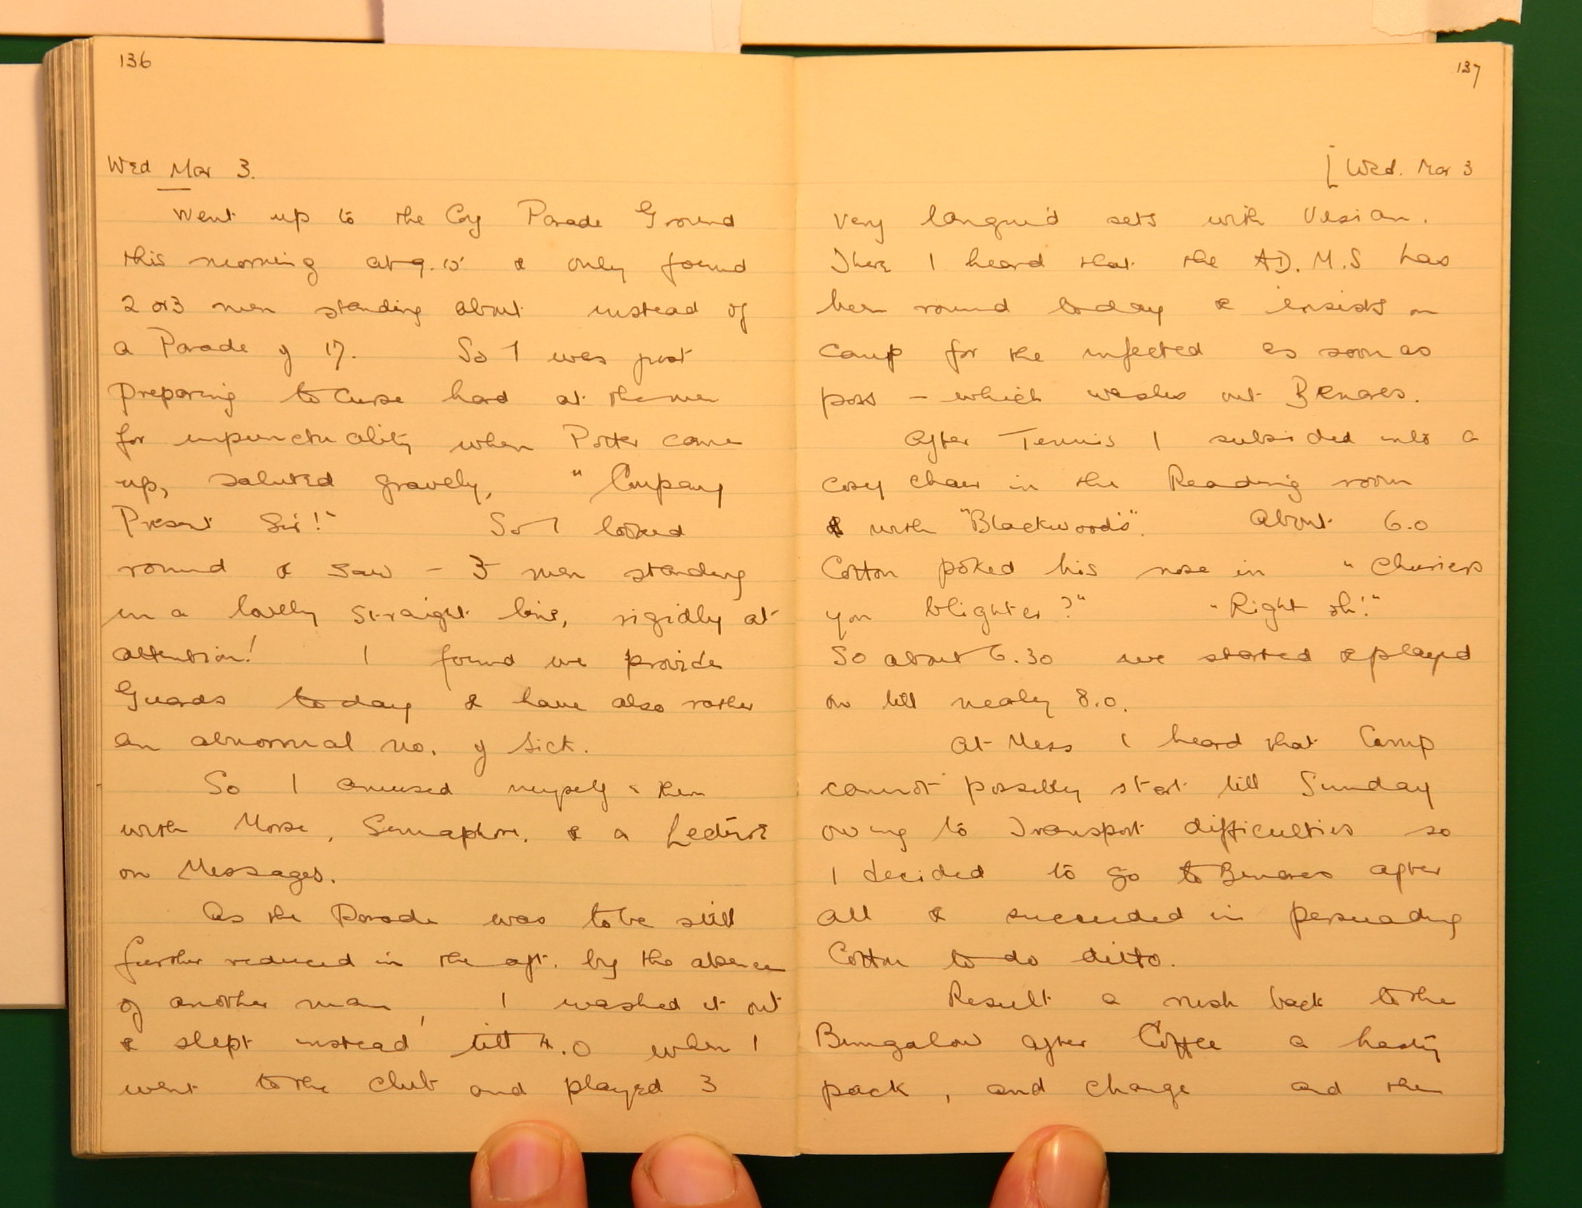 136
Wed Mar 3.
Went up to the Coy Parade Ground
this morning at 9.15 & only found
2 or 3 men standing about instead of
a Parade of 17. So I was just
preparing to curse hard at the men
for unpunctuality when Potter came
up, saluted gravely, "Company
Present Sir!" So I looked
round & saw – 3 men standing
in a lovely straight line, rigidly at
attention! I found we provide
Guards today & have also rather
an abnormal no. of sick.
So I amused myself & them
with Morse, Semaphore, & a Lecture
on Messages.
As the Parade was to be still
further reduced in the aft. by the absence
of another man, I washed it out
& slept instead till 4.0 when I
went to the Club and played 3
137
[Wed. Mar 3
very languid sets with Vivian.
There I heard that the A.D.M.S has
been round today & insists on
camp for the infected as soon as
poss – which washes out Benares.
After Tennis I subsided into a
cosy chair in the Reading room
& with "Blackwood's". About 6.0
Cotton poked his nose in "
you blighter?" "Right oh!"
So about 6.30 we started & played
on till nearly 8.0.
At Mess I heard that Camp
cannot possibly start till Sunday
owing to Transport difficulties so
I decided to go to Benares after
all & succeeded in persuading
Cotton to do ditto.
Result a rush back to the
Bungalow after Coffee a hasty
pack, and change and then